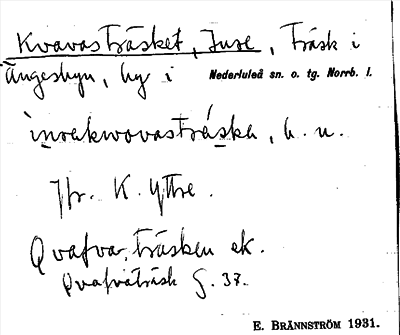 Kvavasträsket, Inre, träsk i
Ängesbyn, by i Nederluleå sn. o. tg. Norrb. l.
inrekwovasträska, b. n.
Jfr. K. Yttre.
Qvafva, träsken ek.
Qvafvaträsk G. 37.
E. BRÄNNSTRÖM 1931.